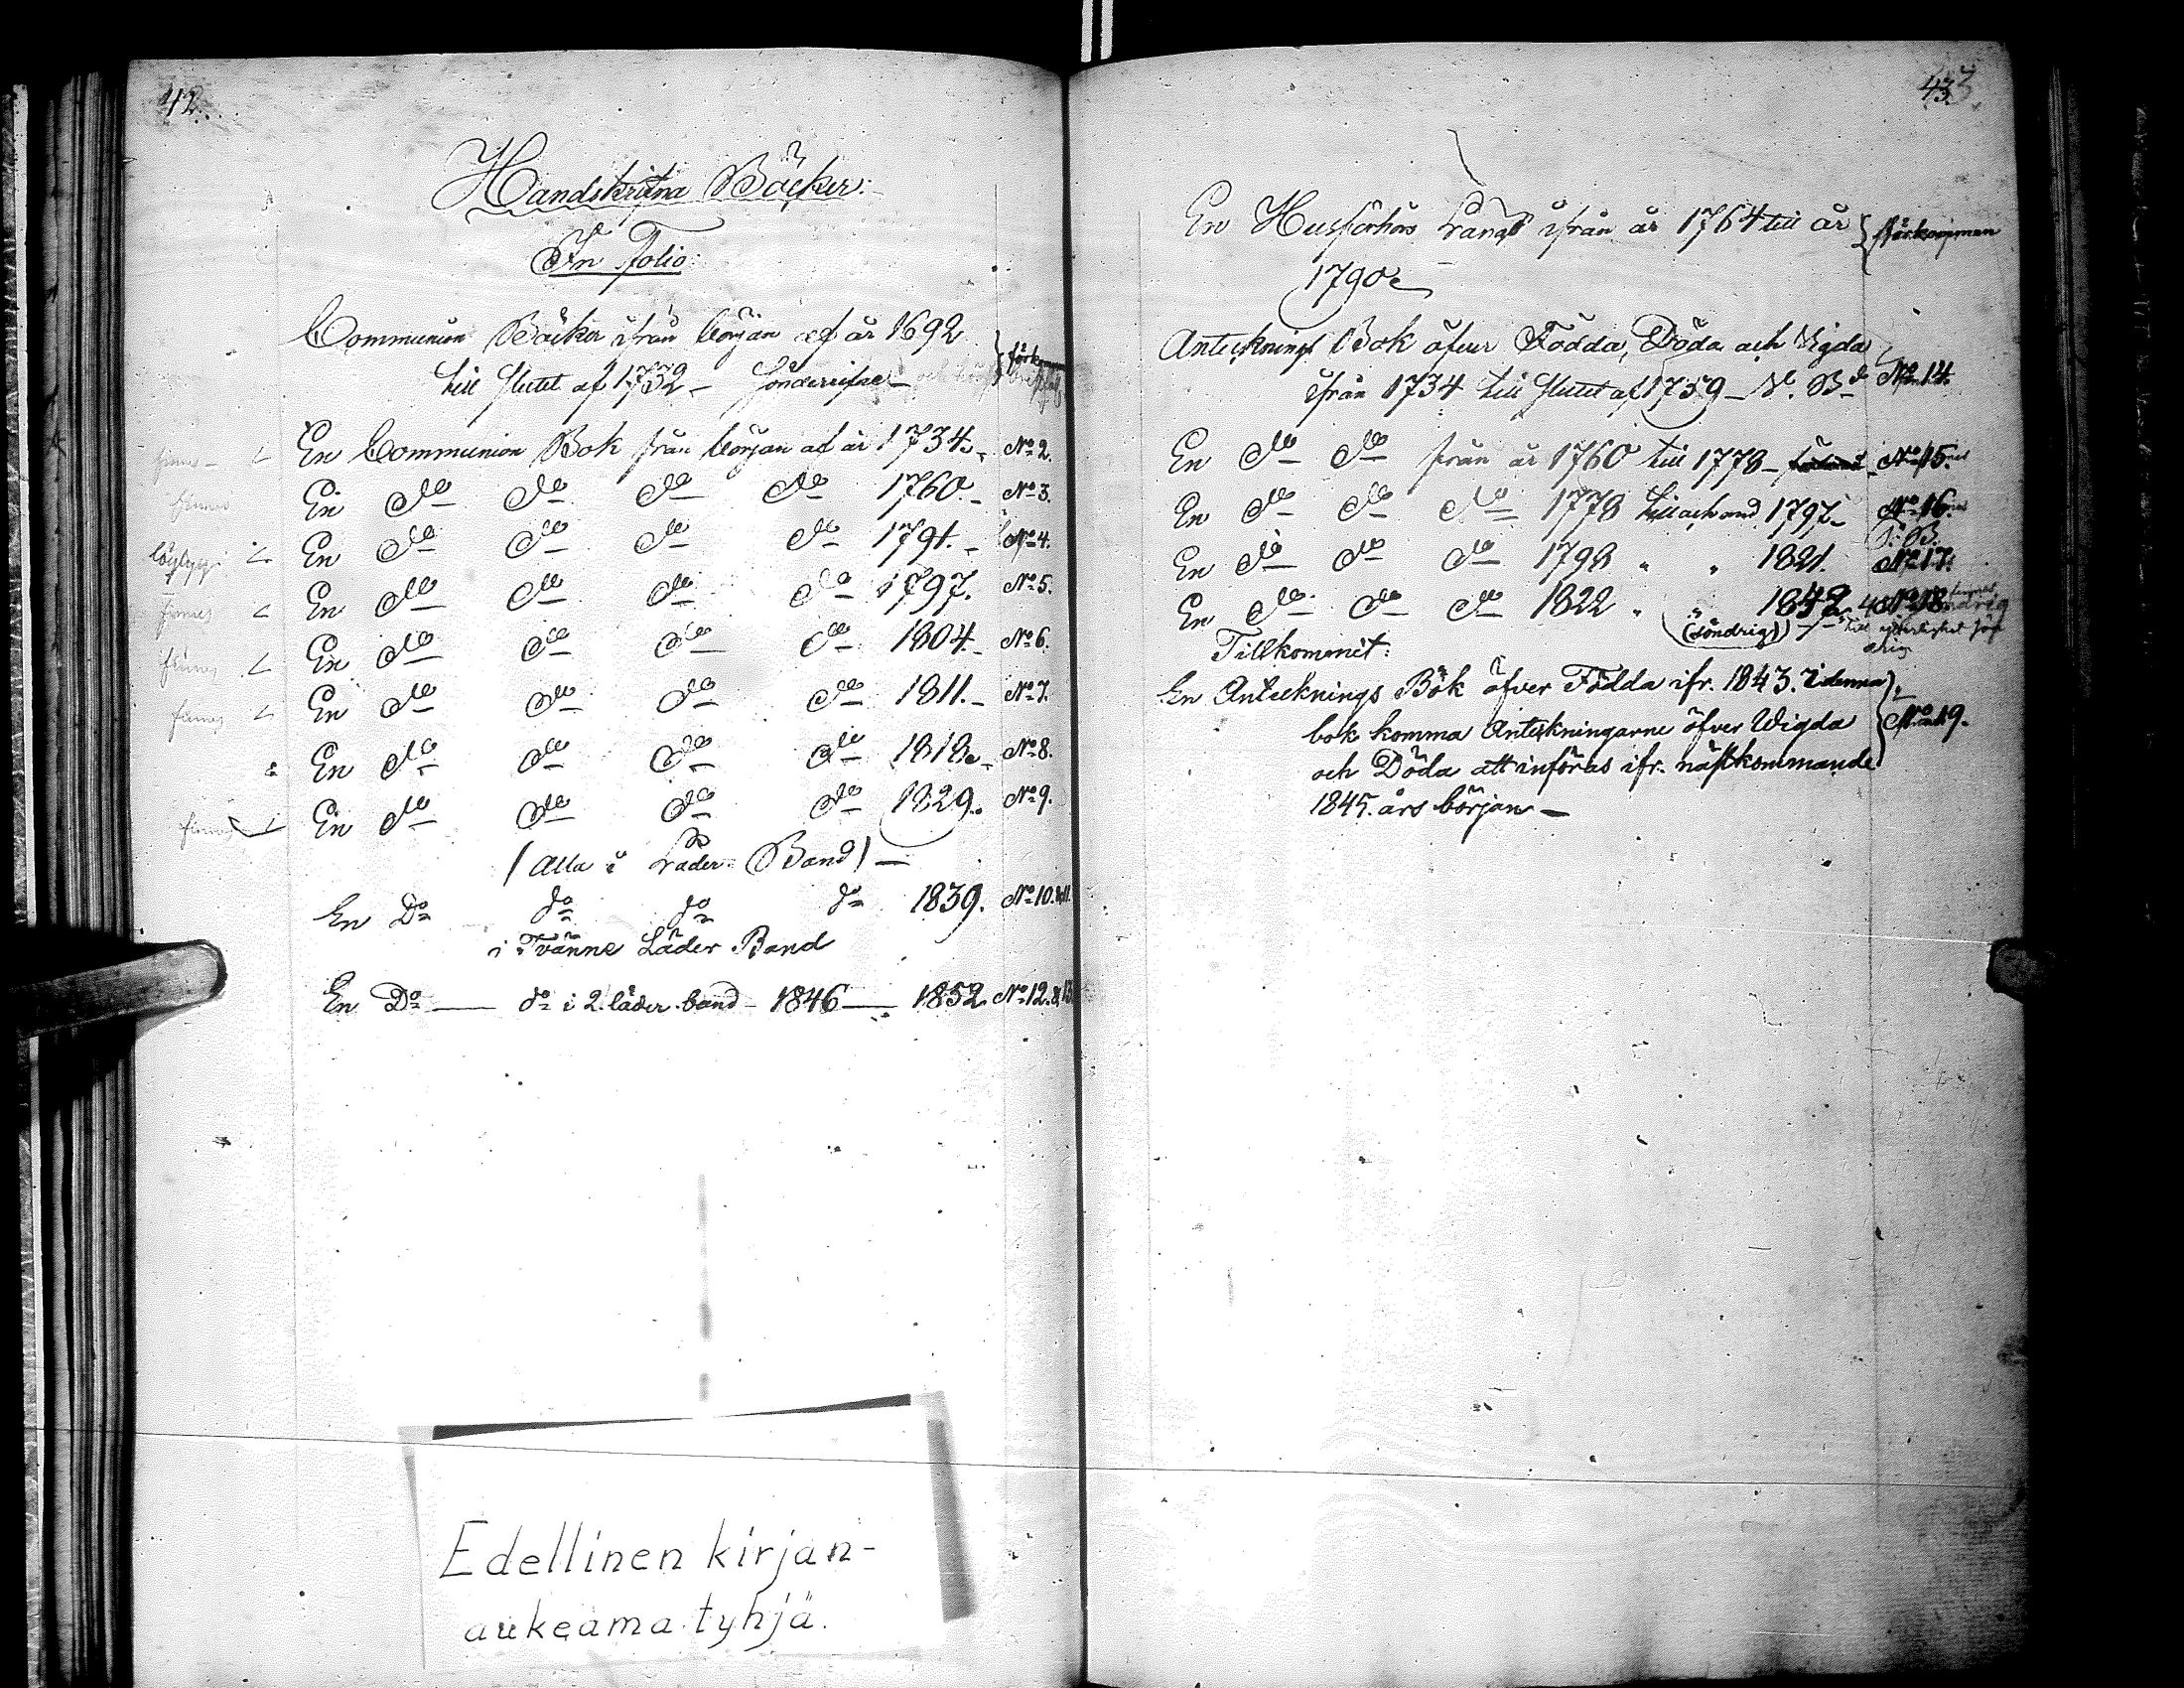 42.
Handskrifna Böcker:
In Folio:
Communion Böcker ifrån början af år 1692
till slutet af 1732 – sönderrifne – förkommen
finnes – En Communion Bok från början af år 1734. – No 2.
finnes En do do do do 1760. – No 3.
En do do do do 1791. – No 4.
finnes En do do do do 1797. No 5.
finnes En do do do do 1804. – No 6.
finnes En do do do do 1811. – No 7.
En do do do do 1818. – No 8.
finnes En do do do do 1829. No 9.
(Alla i Läder Band) –
En Do do do do 1839. No 10. & 11.
i Tvänne Läder Band
En Do — do i 2. läder band – 1846 — 1852. No 12. & 13
Edellinen kirjan-
aukeama tyhjä.
43.
En Husförhörs Längd ifrån år 1764 till år förkommen
1790
Antecknings Bok öfver Födda, Döda och Vigda
ifrån 1734 till slutet af 1759 – No 14.
En do do från år 1760 till 1778 – No 15.
En do do do 1778 till och med 1797 – No 16.
En do do do 1798 " " 1821. No 17.
En do do do 1822 " " 1842 No 18.
(söndrig)
Tillkommit:
En Antecknings Bok öfver Födda ifr. 1843. I denna
bok komma Anteckningarne öfver Wigda No 19.
och Döda att införas ifr. nästkommande
1845. års början —